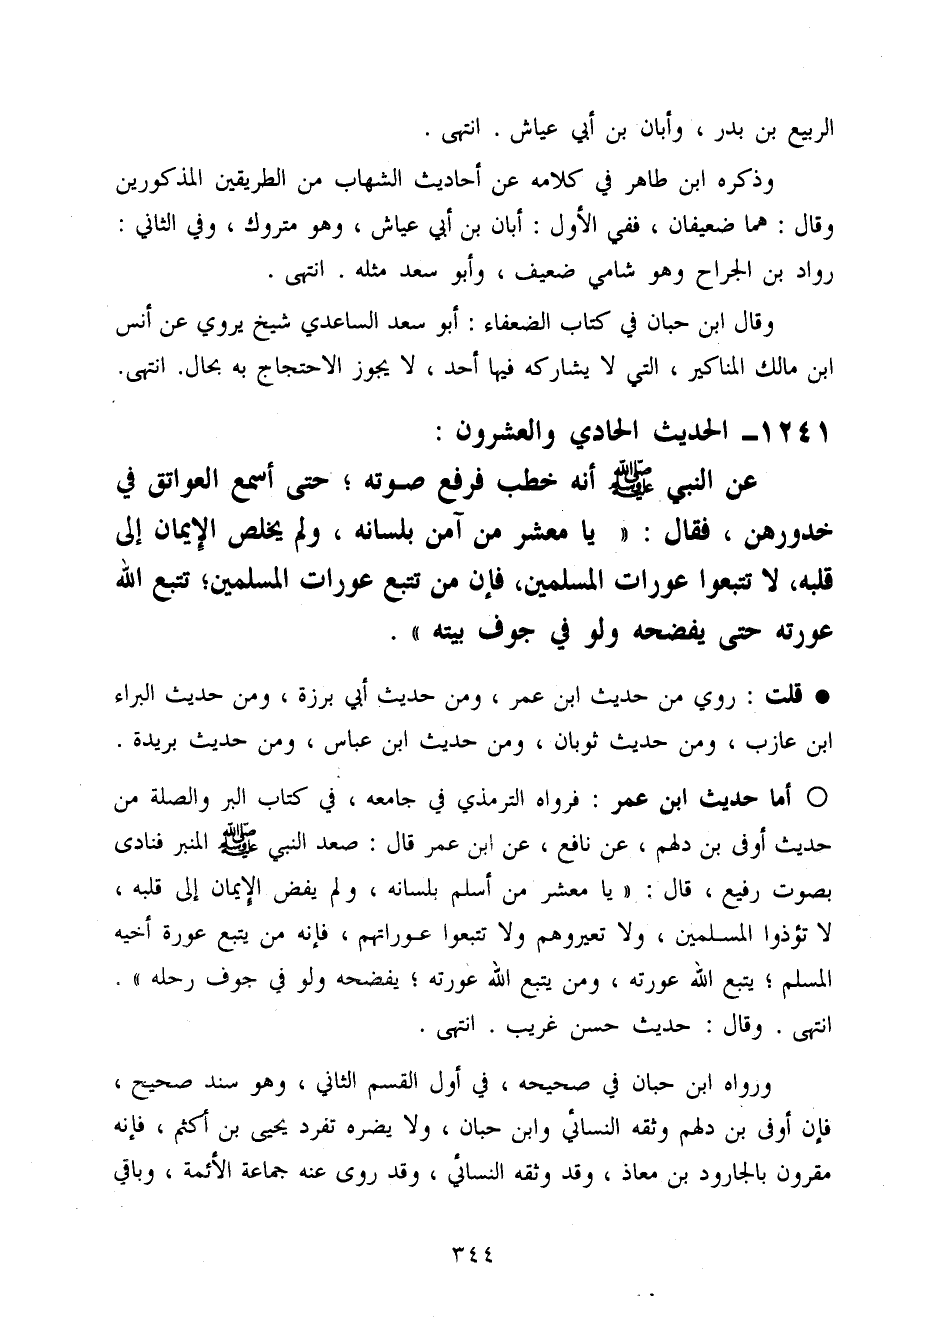 الربيع بن بدر ، وأبان بن أبي عياش . انتهى .
وذكره ابن طاهر في كلامه عن أحاديث الشهاب من الطريقين المذكورين
وقال : هما ضعيفان ، ففي الأول : أبان بن أبي عياش ، وهو متروك ، وفي الثاني :
رواد بن الجراح وهو شامي ضعيف ، وأبو سعد مثله . انتهى .
وقال ابن حبان في كتاب الضعفاء : أبو سعد الساعدي شيخ يروي عن أنس
ابن مالك المناكير ، التي لا يشاركه فيها أحد ، لا يجوز الاحتجاج به بحال. انتهى.
١٢٤١ـ الحديث الحادي والعشرون :
عن النبي ﷺ أنه خطب فرفع صوته ؛ حتى أسمع العواتق في
خدورهن ، فقال : « يا معشر من آمن بلسانه ، ولم يخلص الإيمان إلى
قلبه، لا تتبعوا عورات المسلمين، فإن من تتبع عورات المسلمين؛ تتبع الله
عورته حتى يفضحه ولو في جوف بيته » .
● قلت : روي من حديث ابن عمر ، ومن حديث أبي برزة ، ومن حديث البراء
ابن عازب ، ومن حديث ثوبان ، ومن حديث ابن عباس ، ومن حديث بريدة .
○ أما حديث ابن عمر : فرواه الترمذي في جامعه ، في كتاب البر والصلة من
حديث أوفى بن دلهم ، عن نافع ، عن ابن عمر قال : صعد النبي ﷺ المنبر فنادى
بصوت رفيع ، قال : « يا معشر من أسلم بلسانه ، ولم يفض الإيمان إلى قلبه ،
لا تؤذوا المسلمين ، ولا تعيروهم ولا تتبعوا عوراتهم ، فإنه من يتبع عورة أخيه
المسلم ؛ يتبع الله عورته ، ومن يتبع الله عورته ؛ يفضحه ولو في جوف رحله » .
انتهى . وقال : حديث حسن غريب . انتهى .
ورواه ابن حبان في صحيحه ، في أول القسم الثاني ، وهو سند صحيح ،
فإن أوفى بن دلهم وثقه النسائي وابن حبان ، ولا يضره تفرد يحيى بن أكثم ، فإنه
مقرون بالجارود بن معاذ ، وقد وثقه النسائي ، وقد روى عنه جماعة الأئمة ، وباقي
٣٤٤